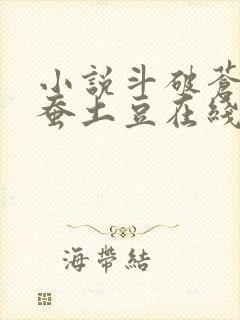 小說斗破蒼
蚕土豆在綫
海帶結